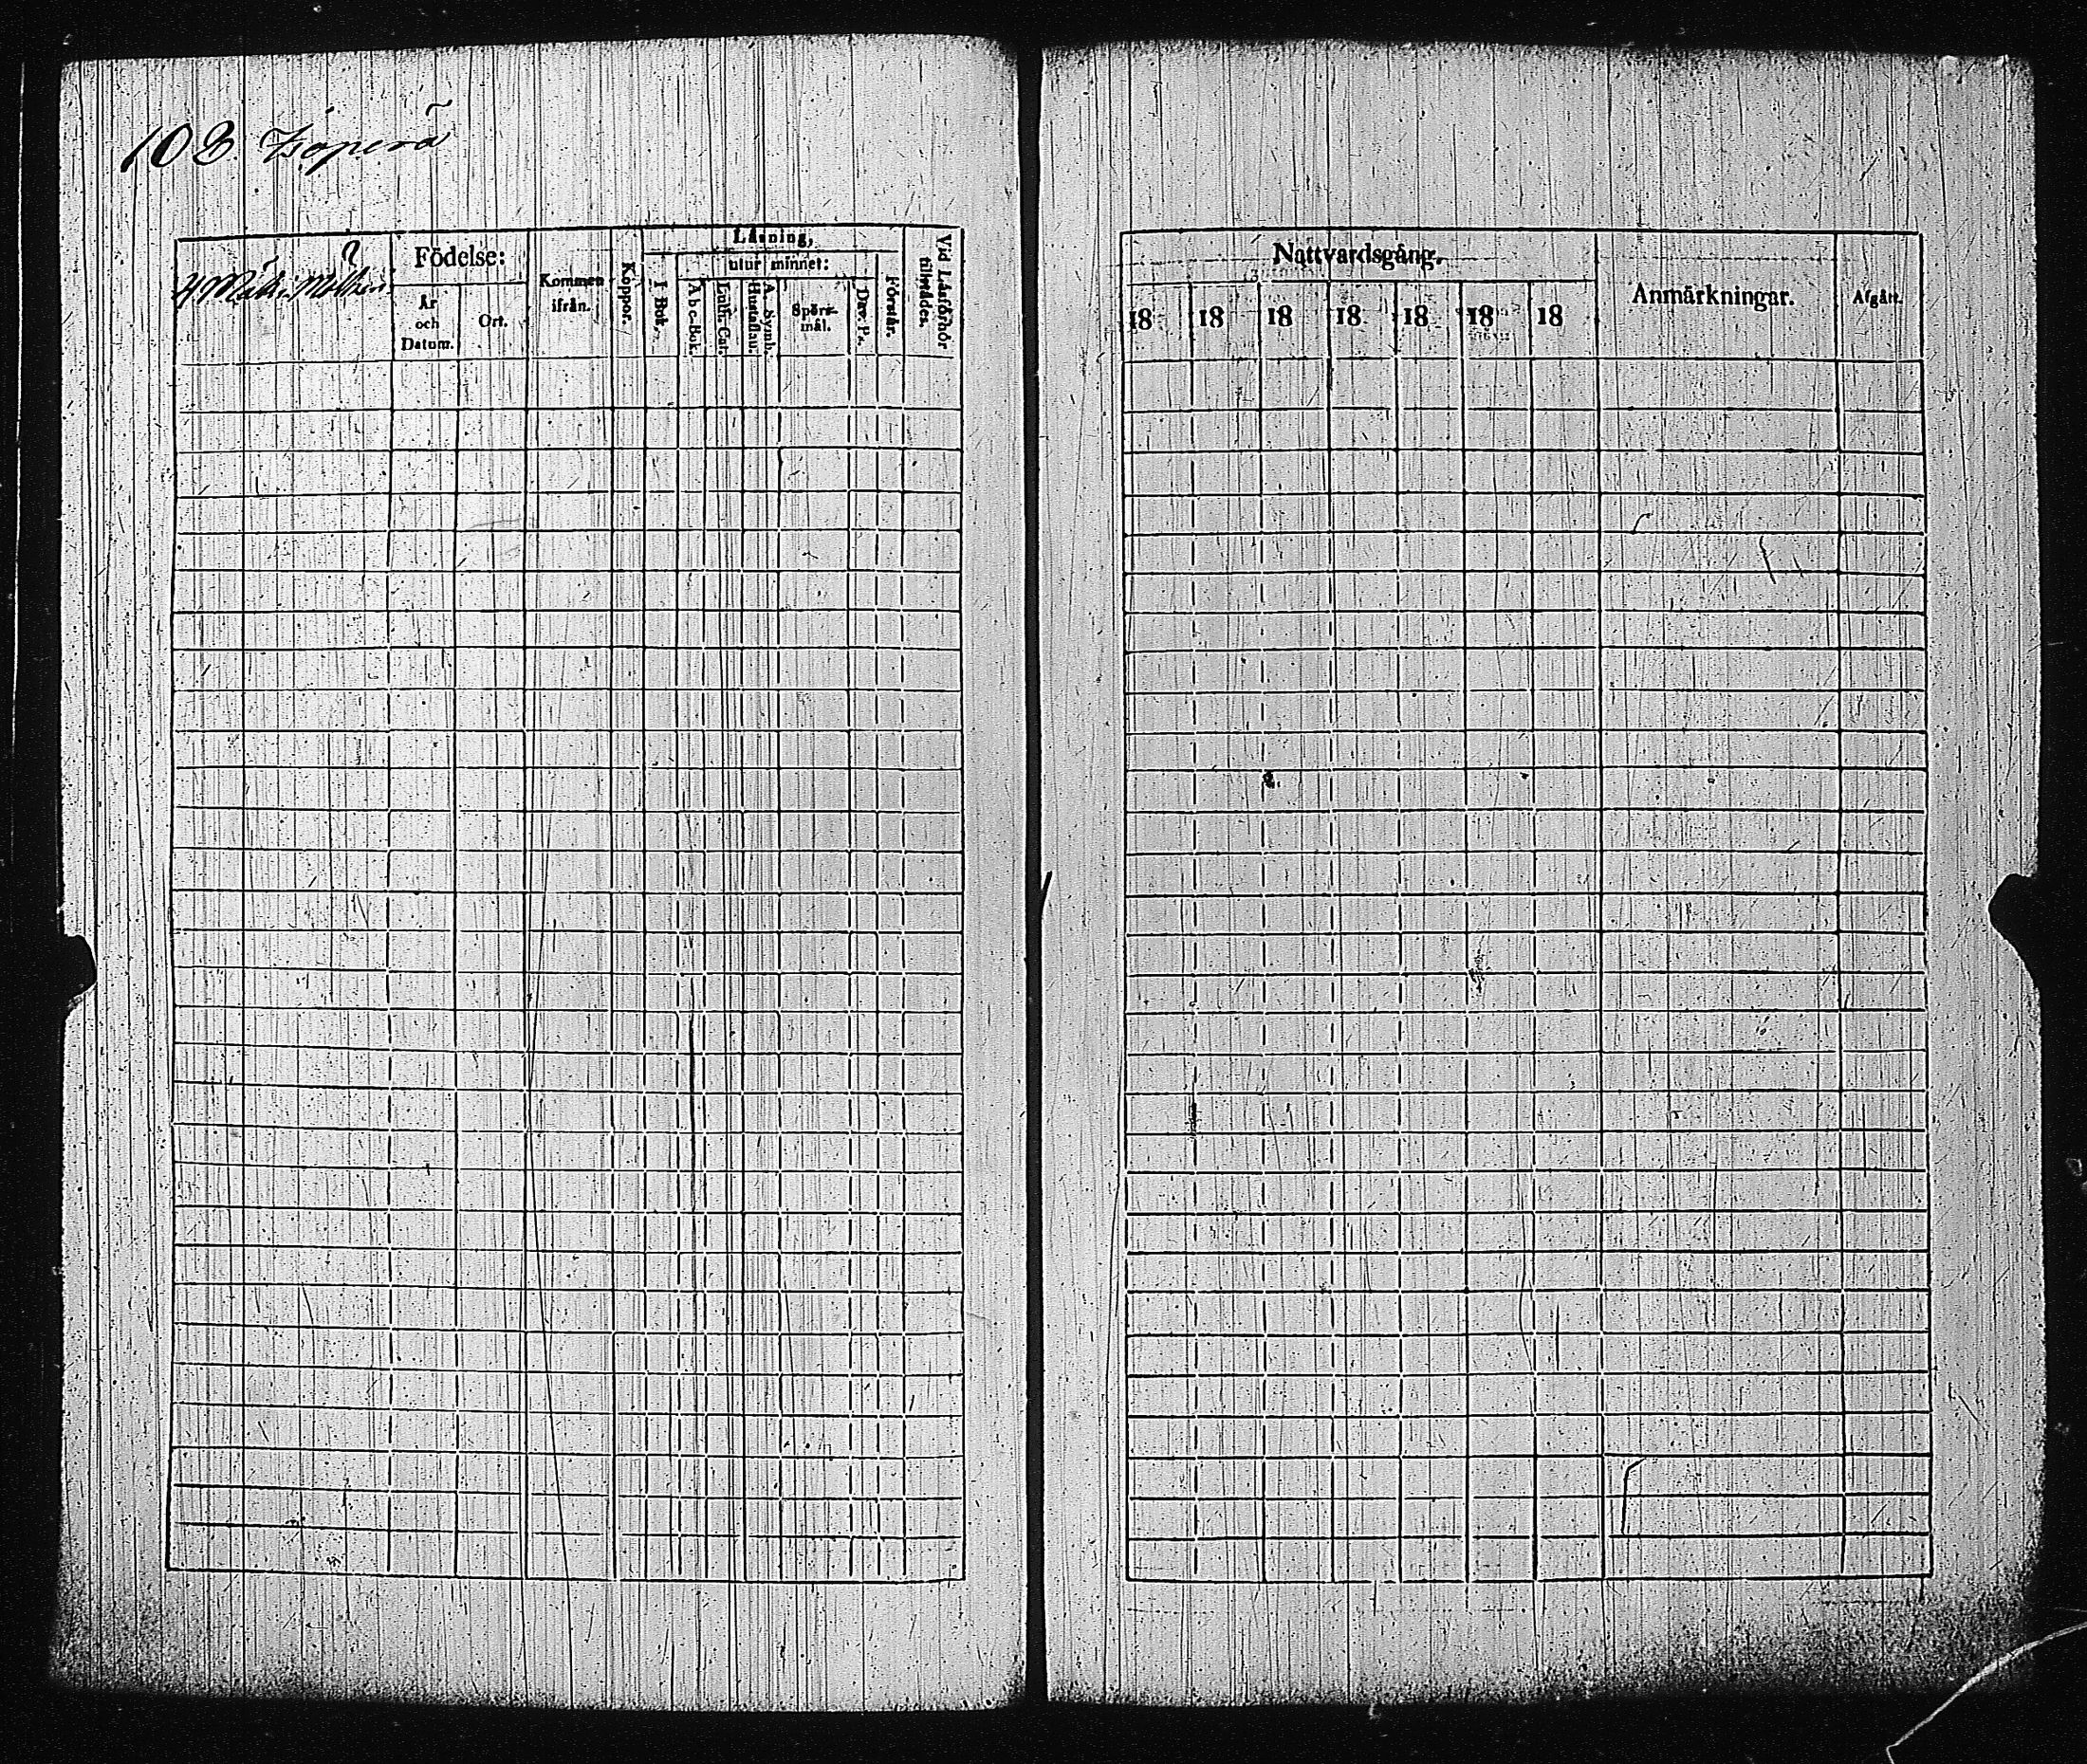 103. Isoperä
Födelse:
År
och
Datum.
Ort.
Kommen
ifrån.
Koppor.
Läsning,
I Bok.
utur minnet:
A b c-Bok.
Luth. Cat.
Hustaflan.
A. Symb.
Spörs-
mål.
Dav. Ps.
Förstår.
Vid Läsförhör
tillstädes.
Nattvardsgång.
18 18 18 18 18 18 18
Anmärkningar.
Afgått.